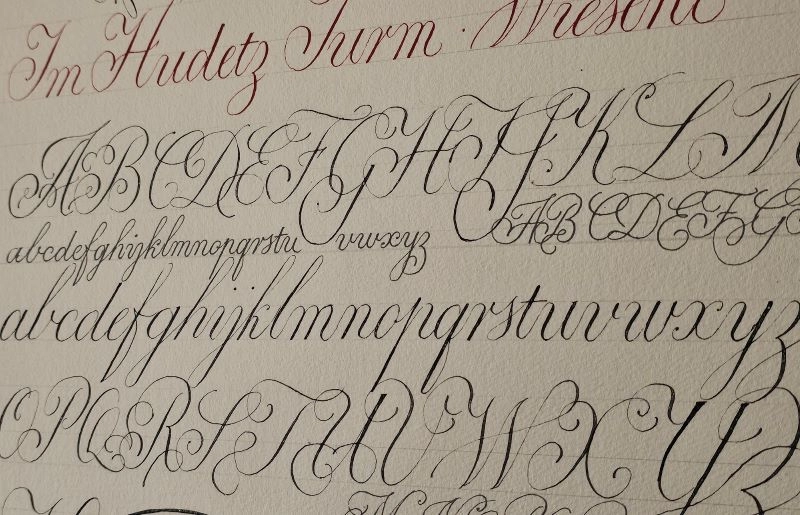 Im Hudetz Turm · Wiesent
A B C D E F G H I J K L M
a b c d e f g h i j k l m n o p q r s t u v w x y z
A B C D E F G
a b c d e f g h i j k l m n o p q r s t u v w x y z
O P Q R S T U V W X Y Z